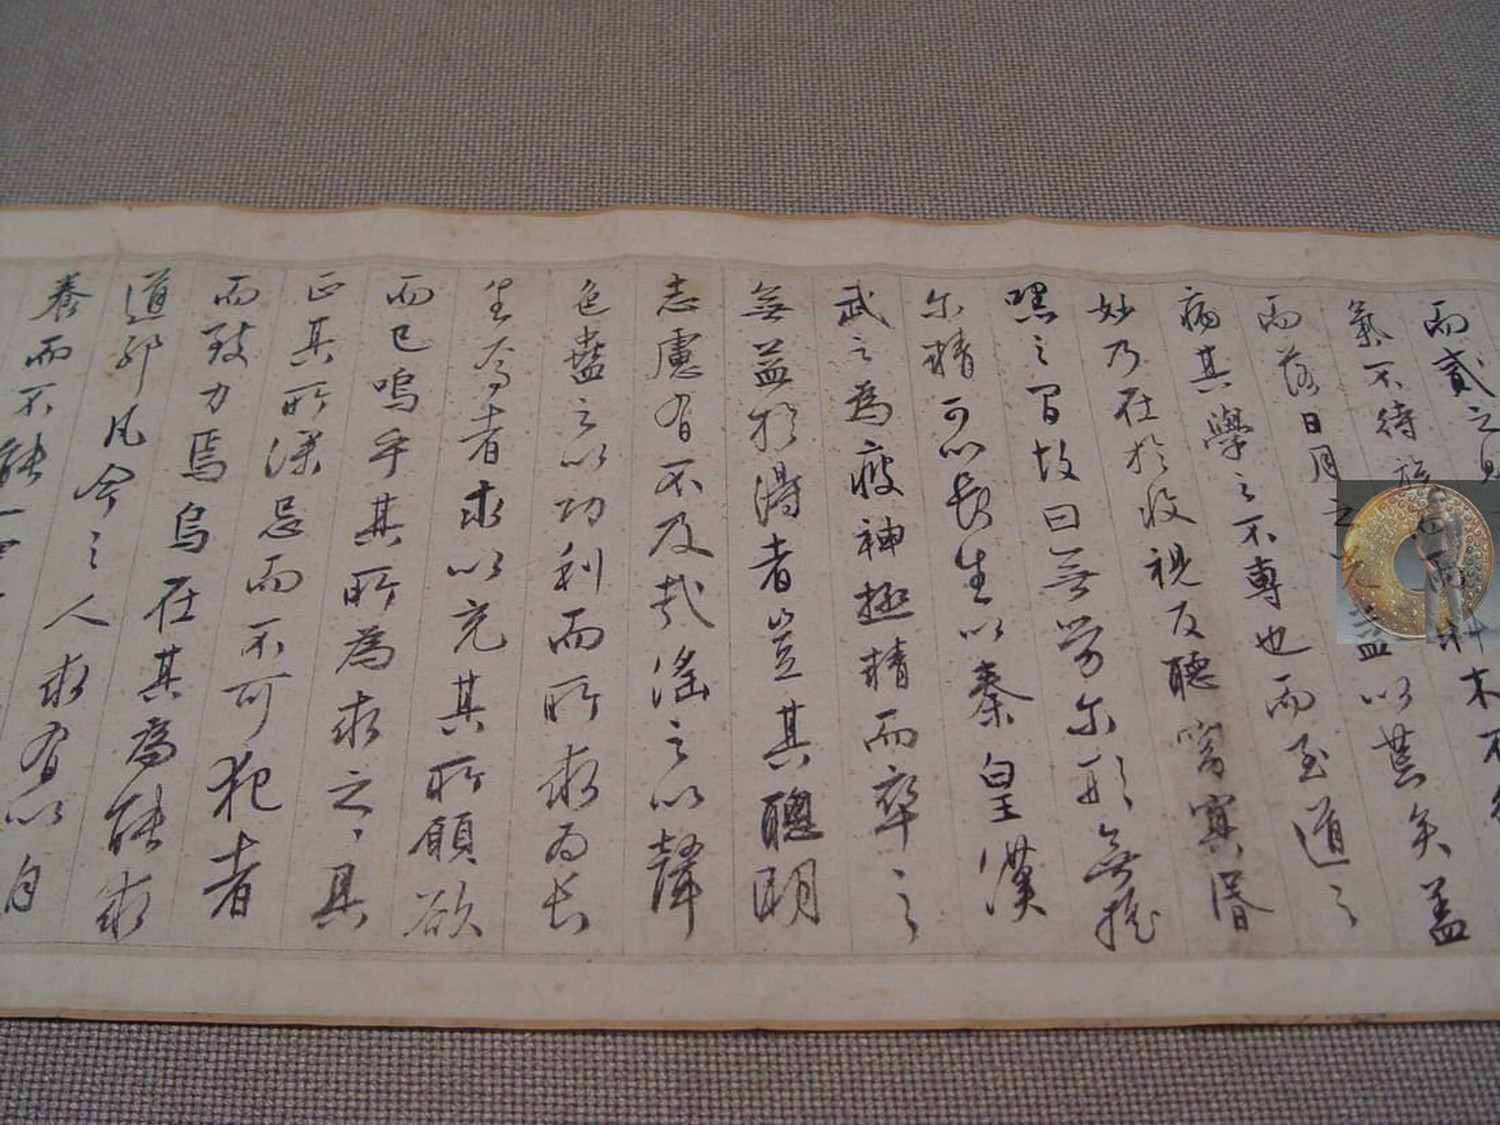 而貳之見
氣不待族而雨艸木不
而落日月之光益以荒矣蓋
病其學之不專也而至道之
妙乃在於收視反聽窅冥昏
嘿之間故曰無勞尔形無搖
尔精可以長生以秦皇漢
武之為疲神極精而卒之
無益於得者豈其聰明
志慮有不及哉滛之以聲
色蠱之以功利而所求為長
生焉者求以充其所願欲
而已嗚乎其所為求之〻具
正其所深忌而不可犯者
而致力焉烏在其為能求
道邪凡今之人求有以自
養而不能一